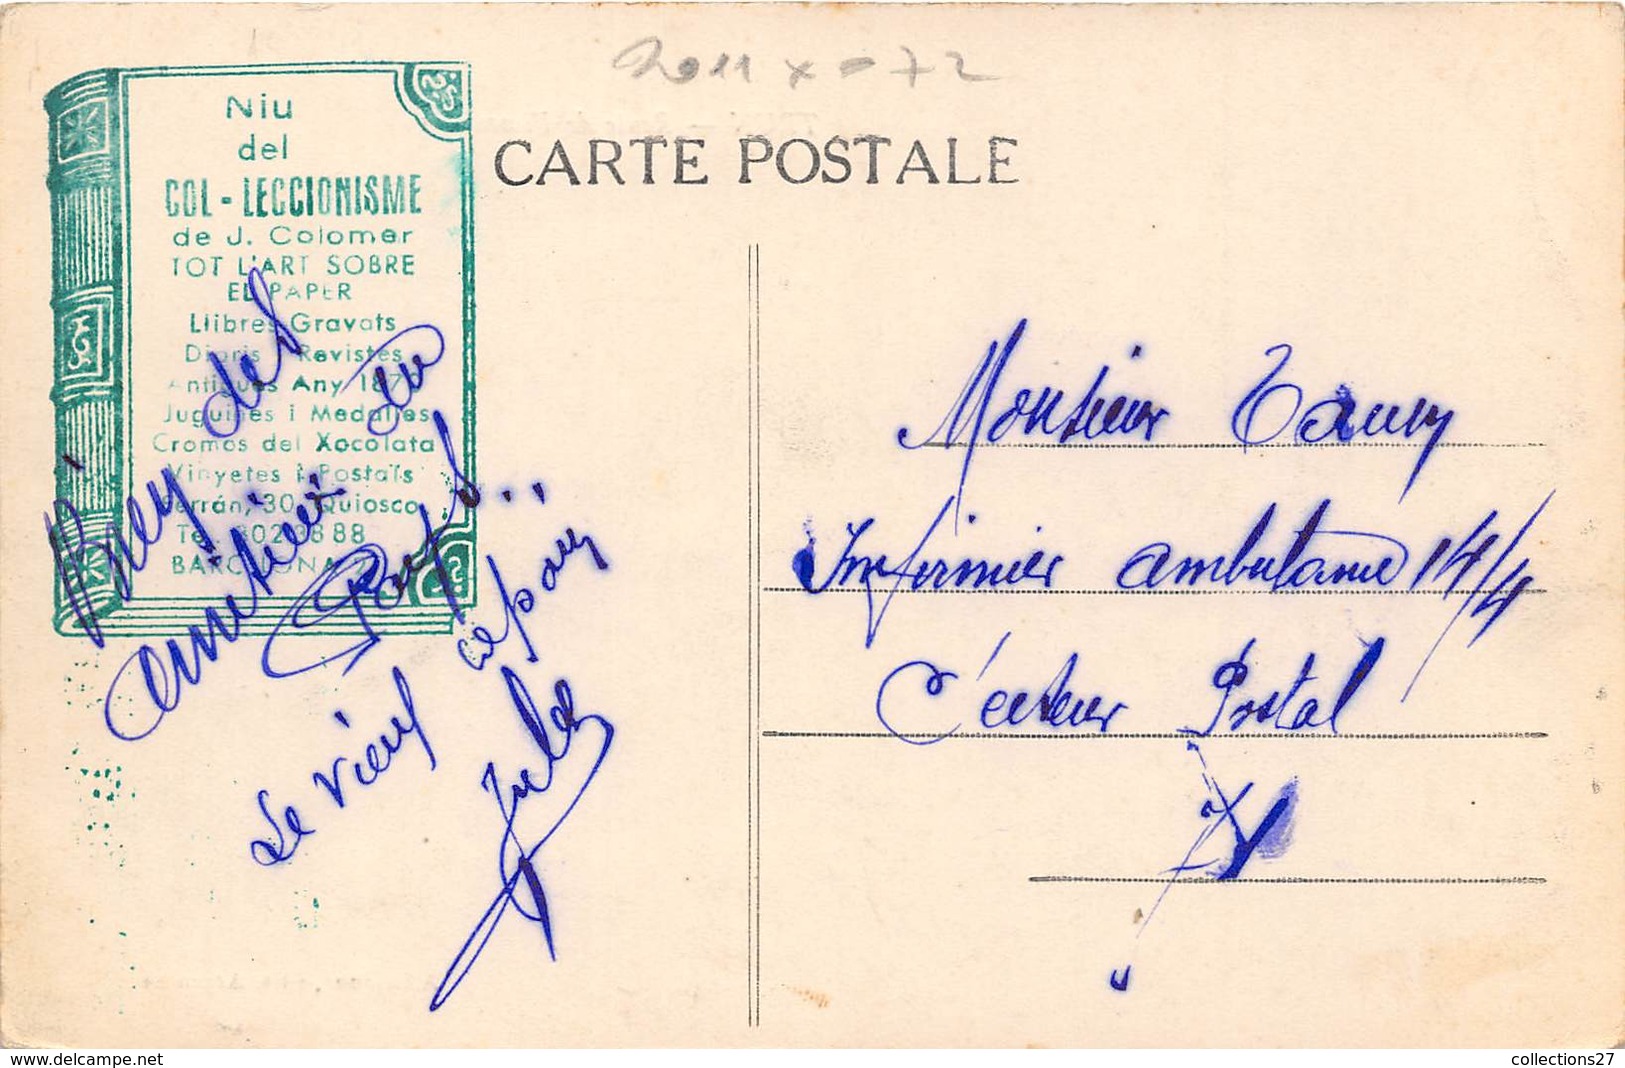 2011 x = 72
CARTE POSTALE
Niu
del
COL-LECCIONISME
de J. Colomer
TOT L'ART SOBRE
EL PAPER
Llibres Gravats
Diaris i Revistes
Antigues Any 1870
Juguines i Medalles
Cromos del Xocolata
Vinyetes i Postals
Ferrán, 30 Quiosco
Tel. 302 38 88
BARCELONA
Bien des
amitiés du
Pays..
Le vieux copain
Jules
Monsieur Taury
Infirmier ambulance 14/4
Secteur Postal
www.delcampe.net
collections27